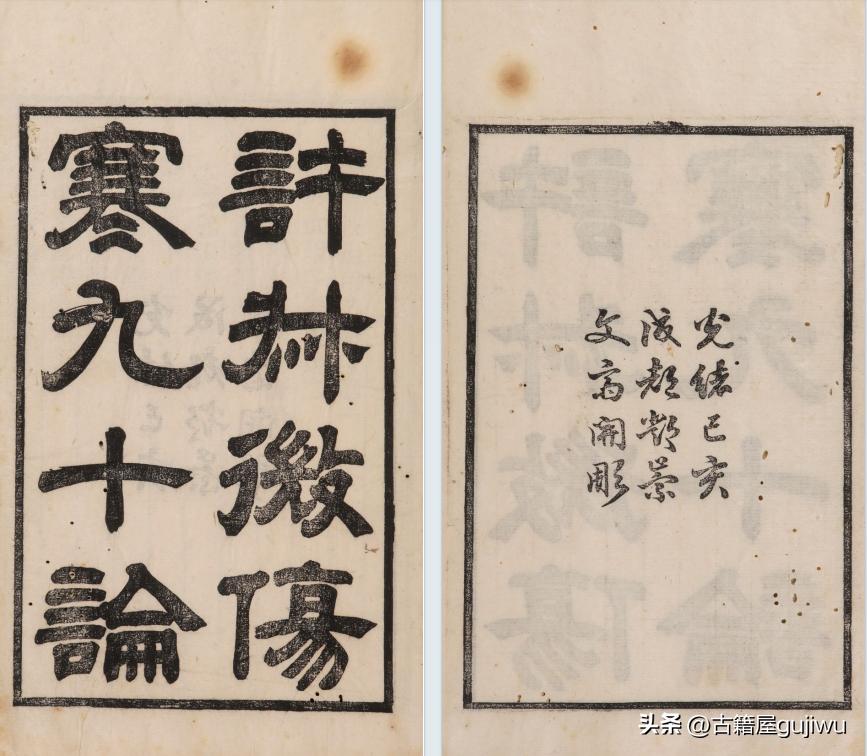 許叔微傷
寒九十論
光緒己亥
成都鄧崇
文齋開彫
头条 @古籍屋gujiwu